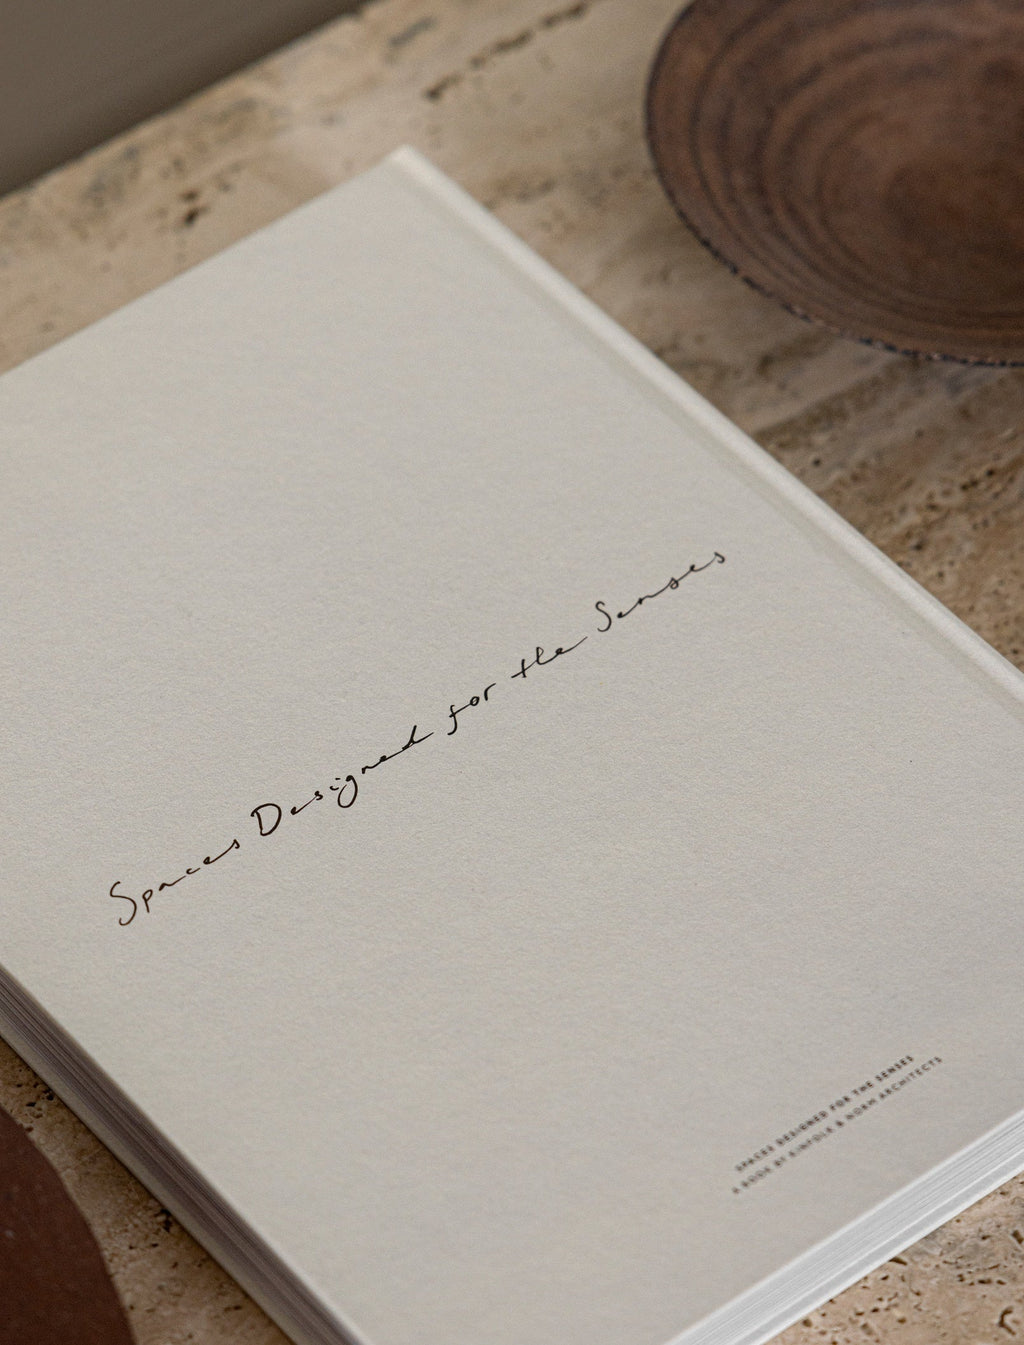 Spaces Designed for the Senses
SPACES DESIGNED FOR THE SENSES
A BOOK BY KINFOLK & NORM ARCHITECTS